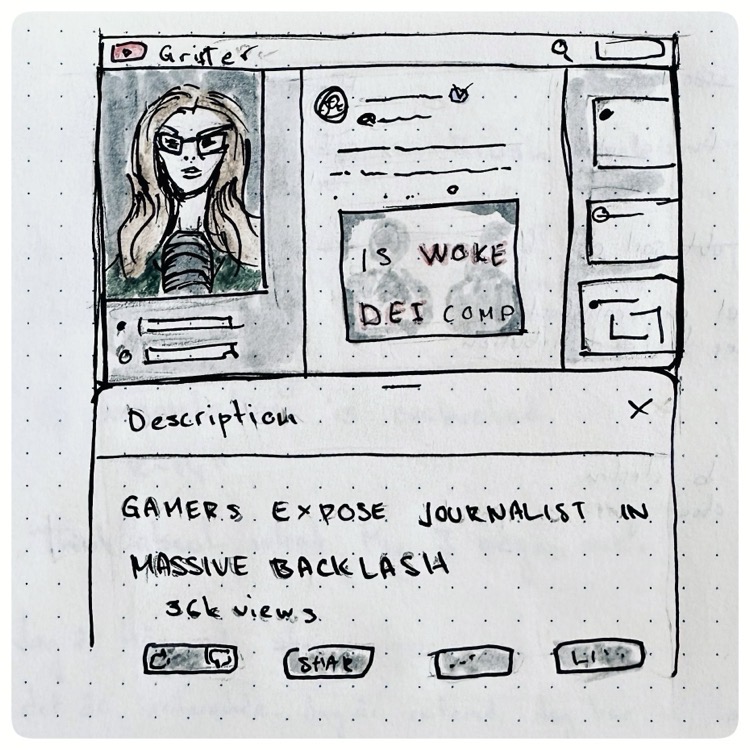 Grifter
IS WOKE
DEI COMP
Description
X
GAMERS EXPOSE JOURNALIST IN
MASSIVE BACKLASH
36k views
SHAR